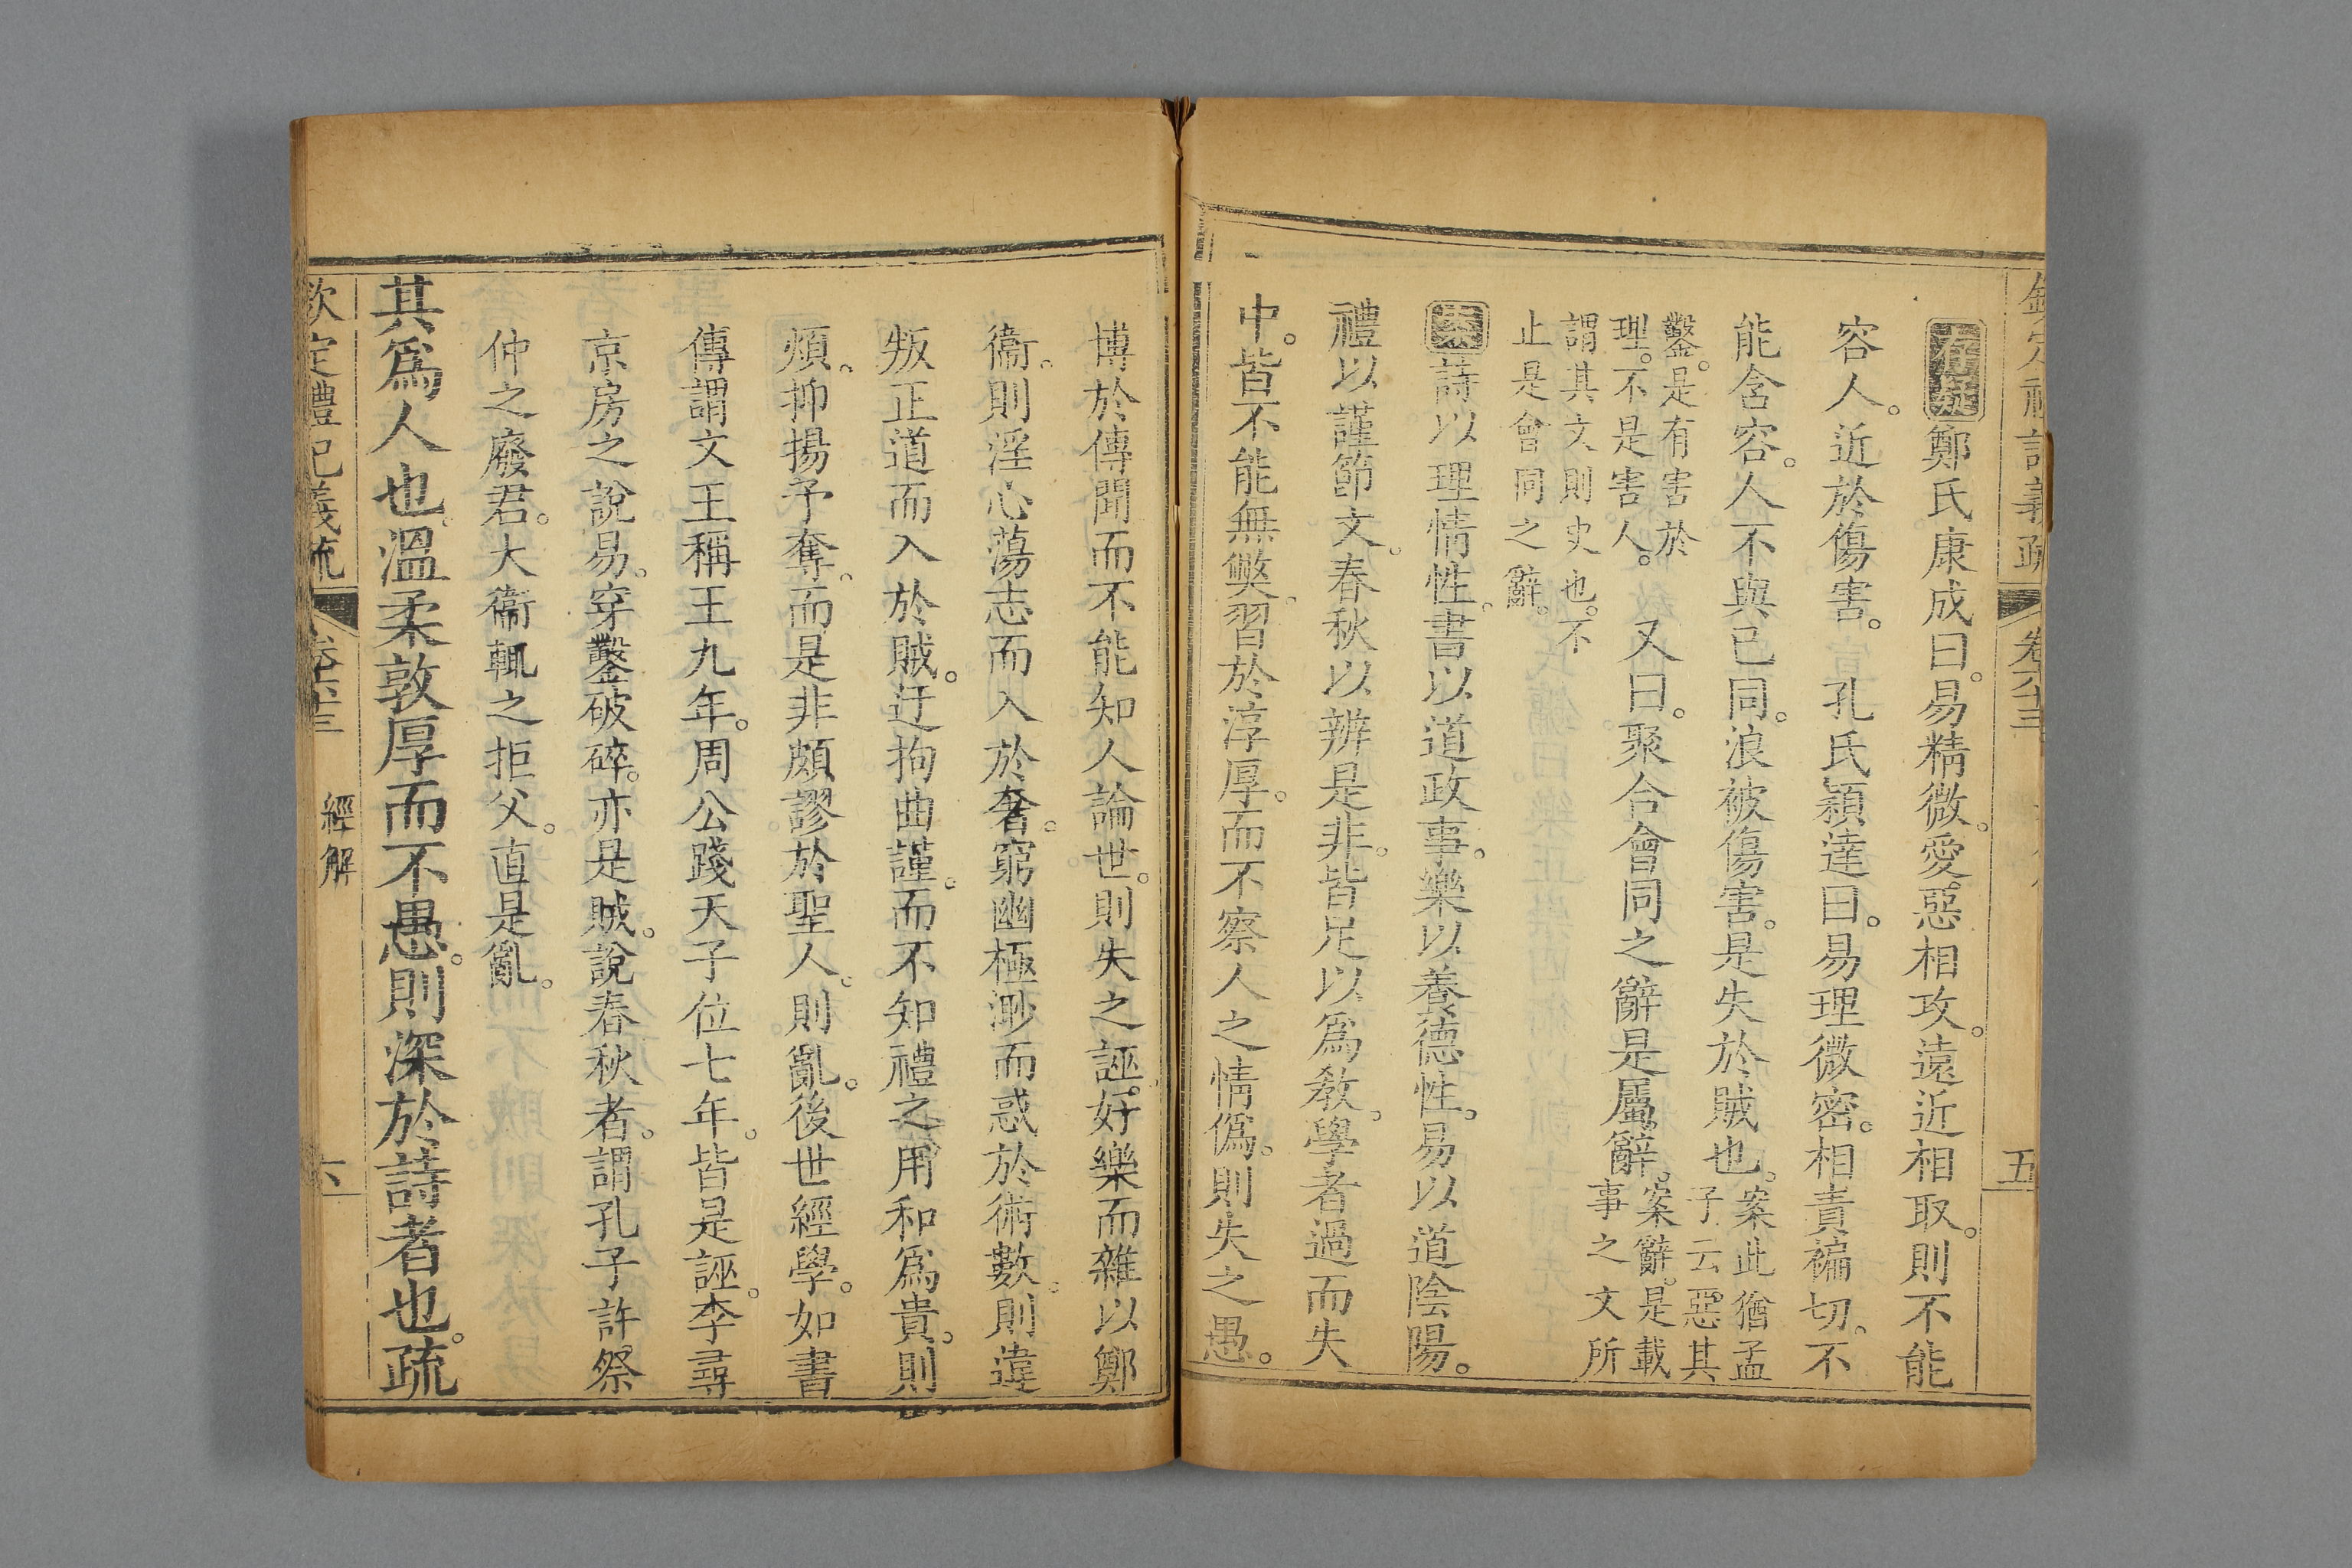 欽定禮記義疏 卷六十三 五
存疑鄭氏康成曰。易精微。愛惡相攻。遠近相取。則不能
容人。近於傷害。孔氏穎達曰。易理微密。相責褊切。不
能含容。人不與已同。浪被傷害。是失於賊也。案此猶孟
子云惡其
鑿。是有害於
理。不是害人。又曰。聚合會同之辭是屬辭。案辭。是載
事之文所
謂其文則史也。不
止是會同之辭。
案詩以理情性。書以道政事。樂以養德性。易以道陰陽。
禮以謹節文。春秋以辨是非。皆足以爲敎。學者過而失
中。皆不能無獘。習於淳厚。而不察人之情僞。則失之愚。
博於傳聞而不能知人論世。則失之誣。好樂而雜以鄭
衞。則淫心蕩志而入於奢。窮幽極渺而惑於術數。則違
叛正道而入於賊。迂拘曲謹。而不知禮之用和爲貴。則
煩。抑揚予奪。而是非頗謬於聖人。則亂。後世經學。如書
傳謂文王稱王九年。周公踐天子位七年。皆是誣。李尋
京房之說易。穿鑿破碎。亦是賊。說春秋者。謂孔子許祭
仲之廢君。大衞輒之拒父。直是亂。
其爲人也。溫柔敦厚而不愚。則深於詩者也。疏
欽定禮記義疏 卷六十三 經解 六